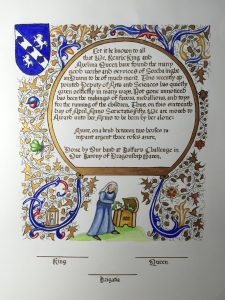 Let it be known to all
that We, Kenric King and
Avelina Queen have found the many
good works and services of
to Us to be of much merit. This recently ap
pointed Deputy of Arts and Sciences has quietly
given selflessly in many ways. Not gone unnoticed
has been the makings of favors, medallions, and toys
for the running of the children. Thus, on this sixteenth
day of April, Anno Societatis, We are moved to
Award unto her Arms to be born by her alone:
Azure, on a bend between two horses ra
mpant argent three roses azure.
Done by Our hand at Balfar's Challenge in
Our Barony of Dragonship Haven.
King
Queen
Brigantia